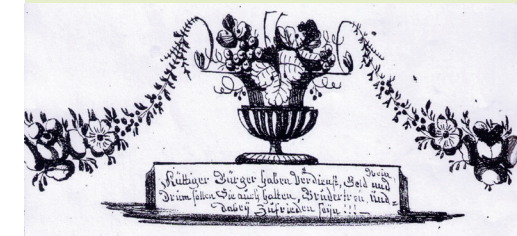 Rüttiger Bürger haben Verdienst, Gold und Wein
Drum sollen Sie auch halten, Brüdertreu, und
dabeÿ Zufrieden seÿn !!! –